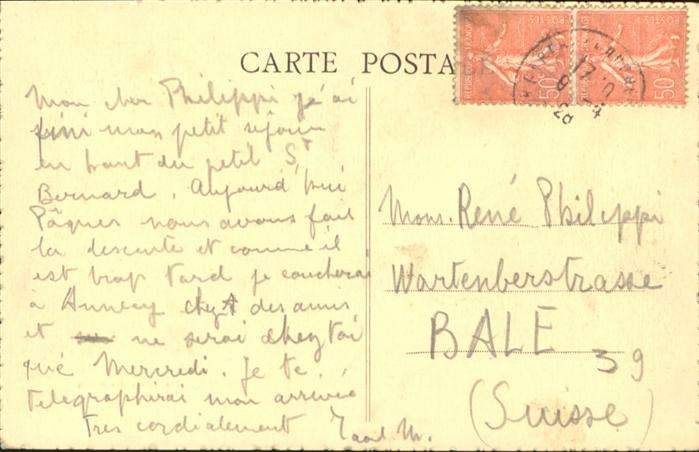 CARTE POSTALE
Mon cher Philippi j'ai
fini mon petit séjour
en haut du petit St
Bernard. Aujourd'hui
Pâques nous avons fait
la descente et comme il
est trop tard je coucherai
à Annecy chez des amis
et ne serai chez toi
que Mercredi. Je te
telegraphirai mon arrivée
Tres cordialement M.
Mons. René Philippi
Wartenberstrasse
BALE 39
(Suisse)
50
50